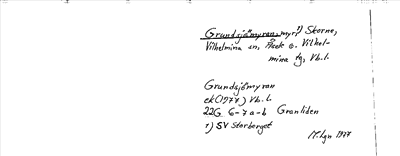 Grundsjömyran, myr¹) Skorne,
Vilhelmina sn, Åsele o. Vilhel-
mina tg, Vb.l.
Grundsjömyran
ek (1977) Vb.l.
22G 6-7 a-b Granliden
1) SV Storberget
1977